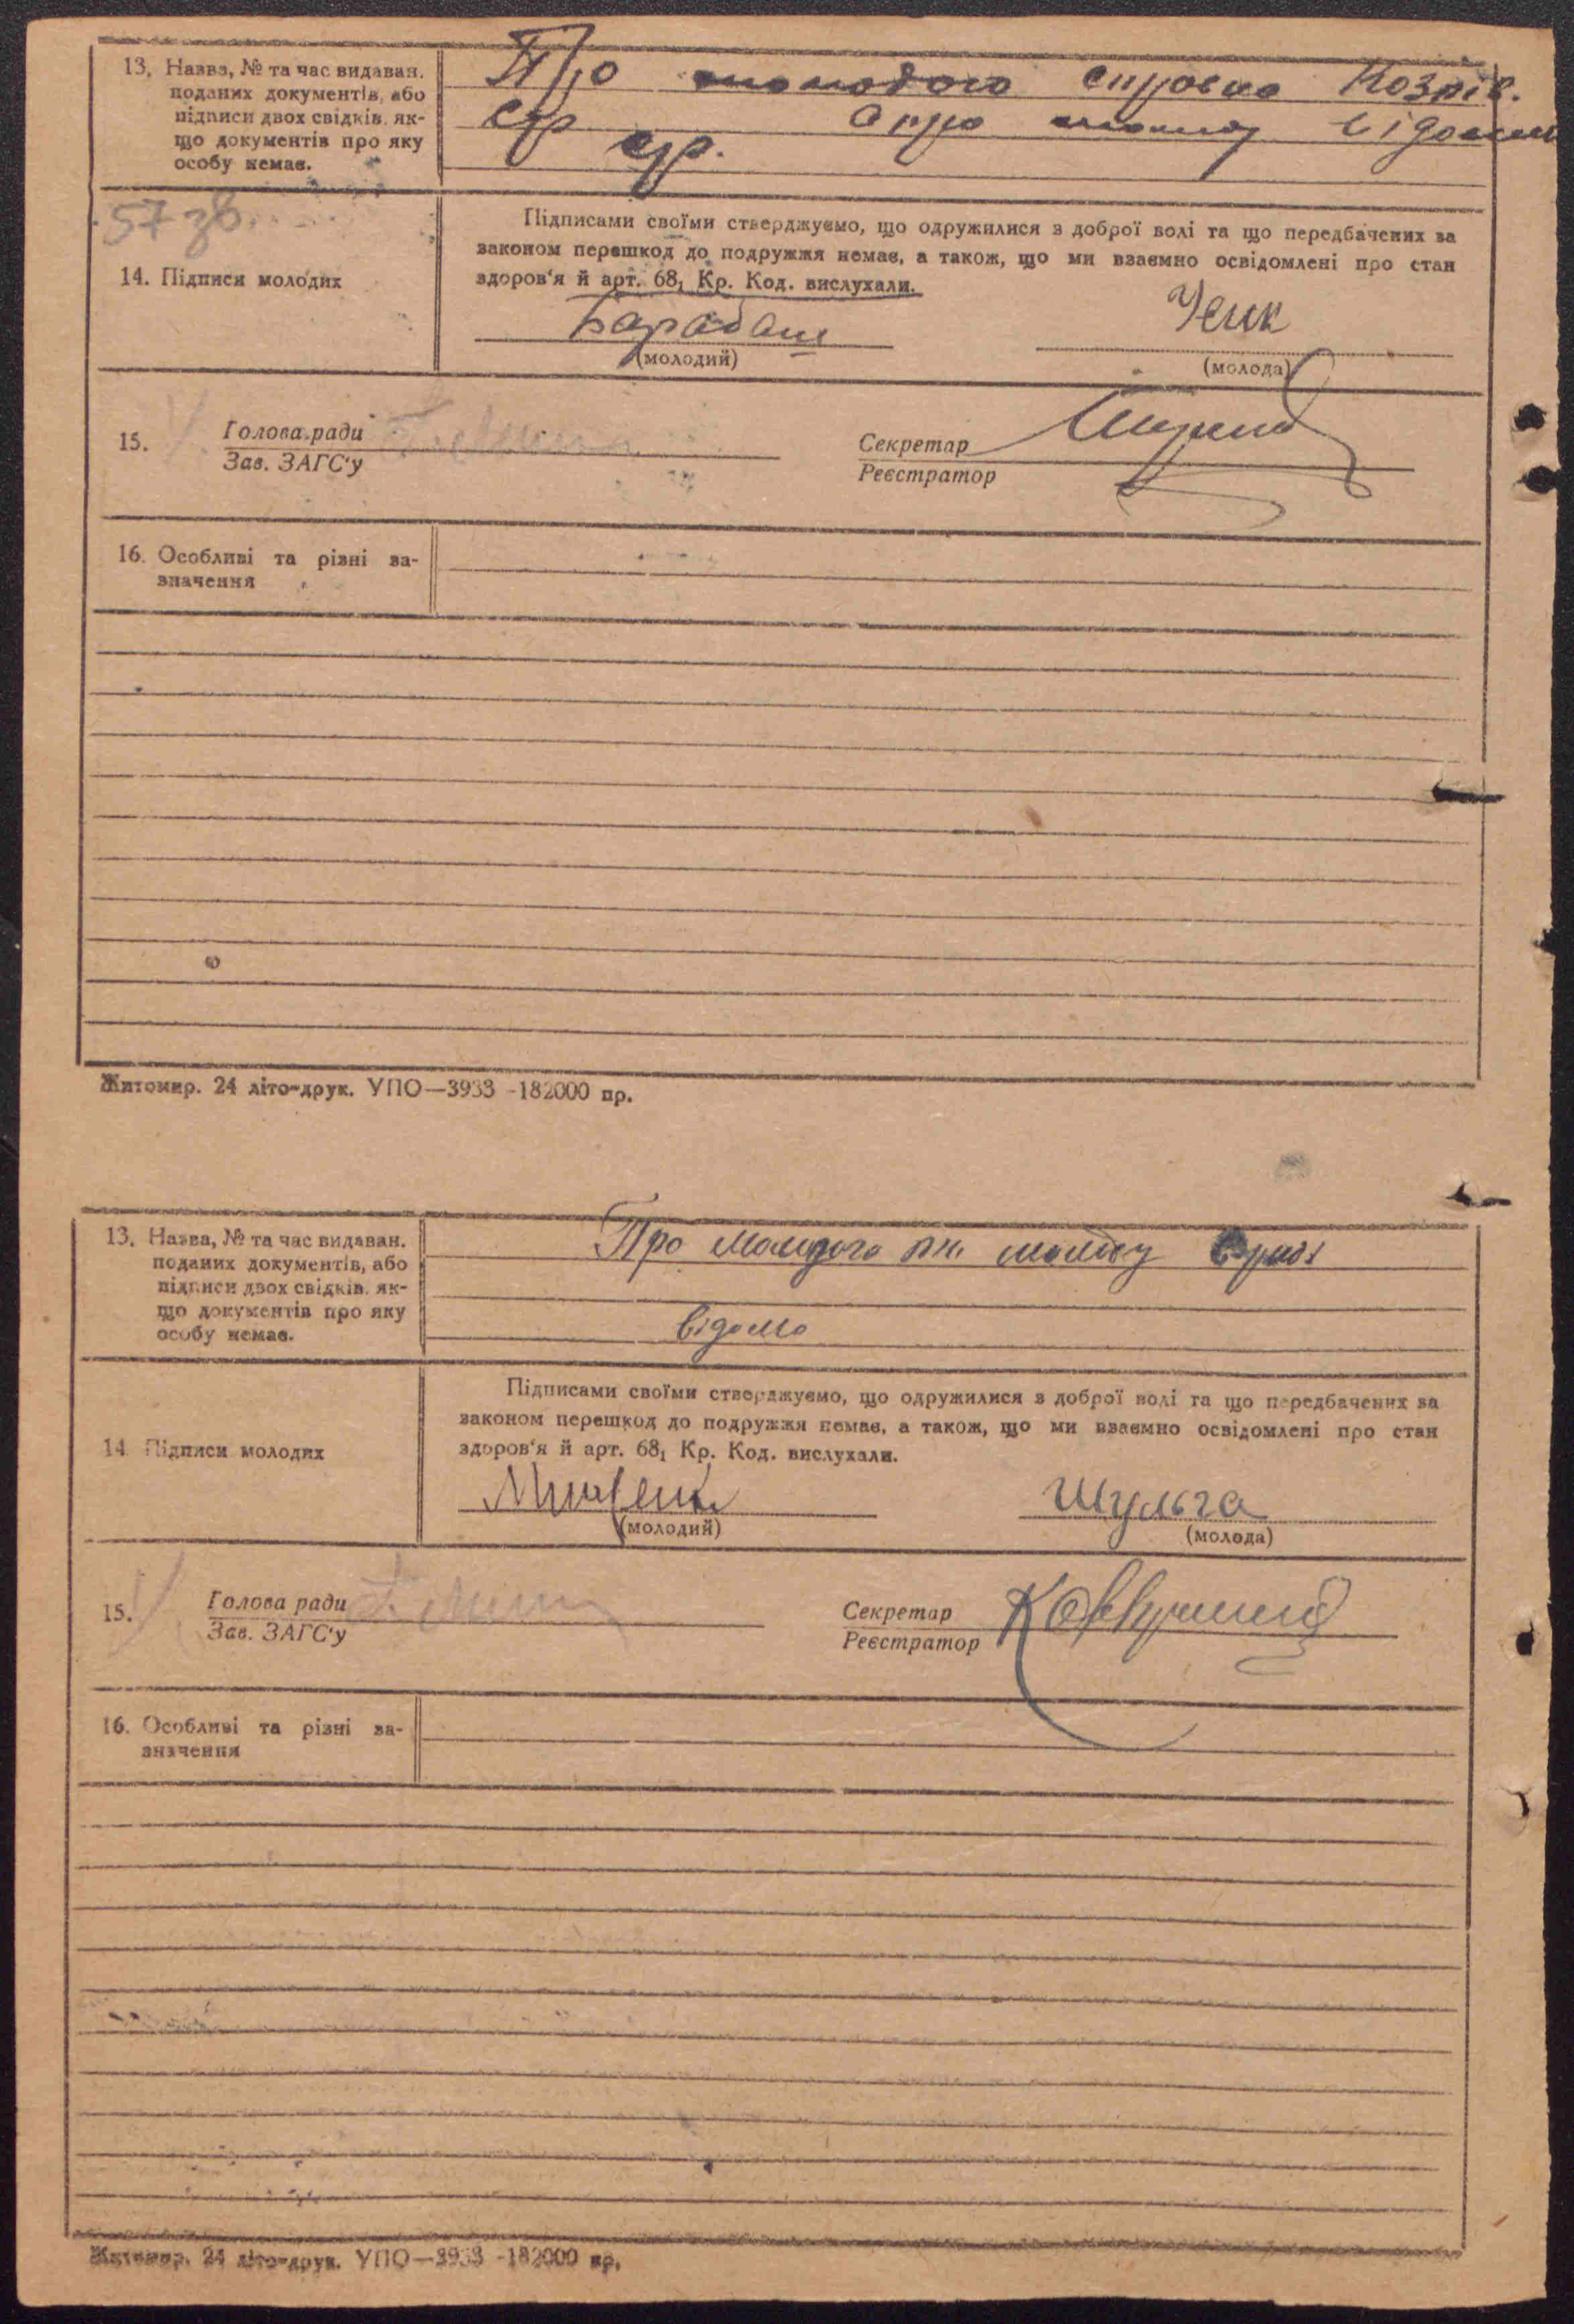 13. Назва, № та час видаван.
поданих документів, або
підписи двох свідків, як-
що документів про яку
особу немає.
Про молодого справка Козлів.
ср ср. а про молоду відомо
57 зв.
14. Підписи молодих
Підписами своїми стверджуємо, що одружилися з доброї волі та що передбачених за
законом перешкод до подружжя немає, а також, що ми взаємно освідомлені про стан
здоров'я й арт. 68₁ Кр. Код. вислухали.
Барабаш
Усик
(молодий)
(молода)
15.
Голова ради
Зав. ЗАГС'у
Секретар
Реєстратор
16. Особливі та різні за-
значення
Житомир. 24 літо-друк. УПО—3933 -182000 пр.
13. Назва, № та час видаван.
поданих документів, або
підписи двох свідків, як-
що документів про яку
особу немає.
Про молодого молоду
відомо
14. Підписи молодих
Підписами своїми стверджуємо, що одружилися з доброї волі та що передбачених за
законом перешкод до подружжя немає, а також, що ми взаємно освідомлені про стан
здоров'я й арт. 68₁ Кр. Код. вислухали.
Шульга
(молодий)
(молода)
15.
Голова ради
Зав. ЗАГС'у
Секретар
Реєстратор
16. Особливі та різні за-
значення
Житомир. 24 літо-друк. УПО—3933 -182000 пр.